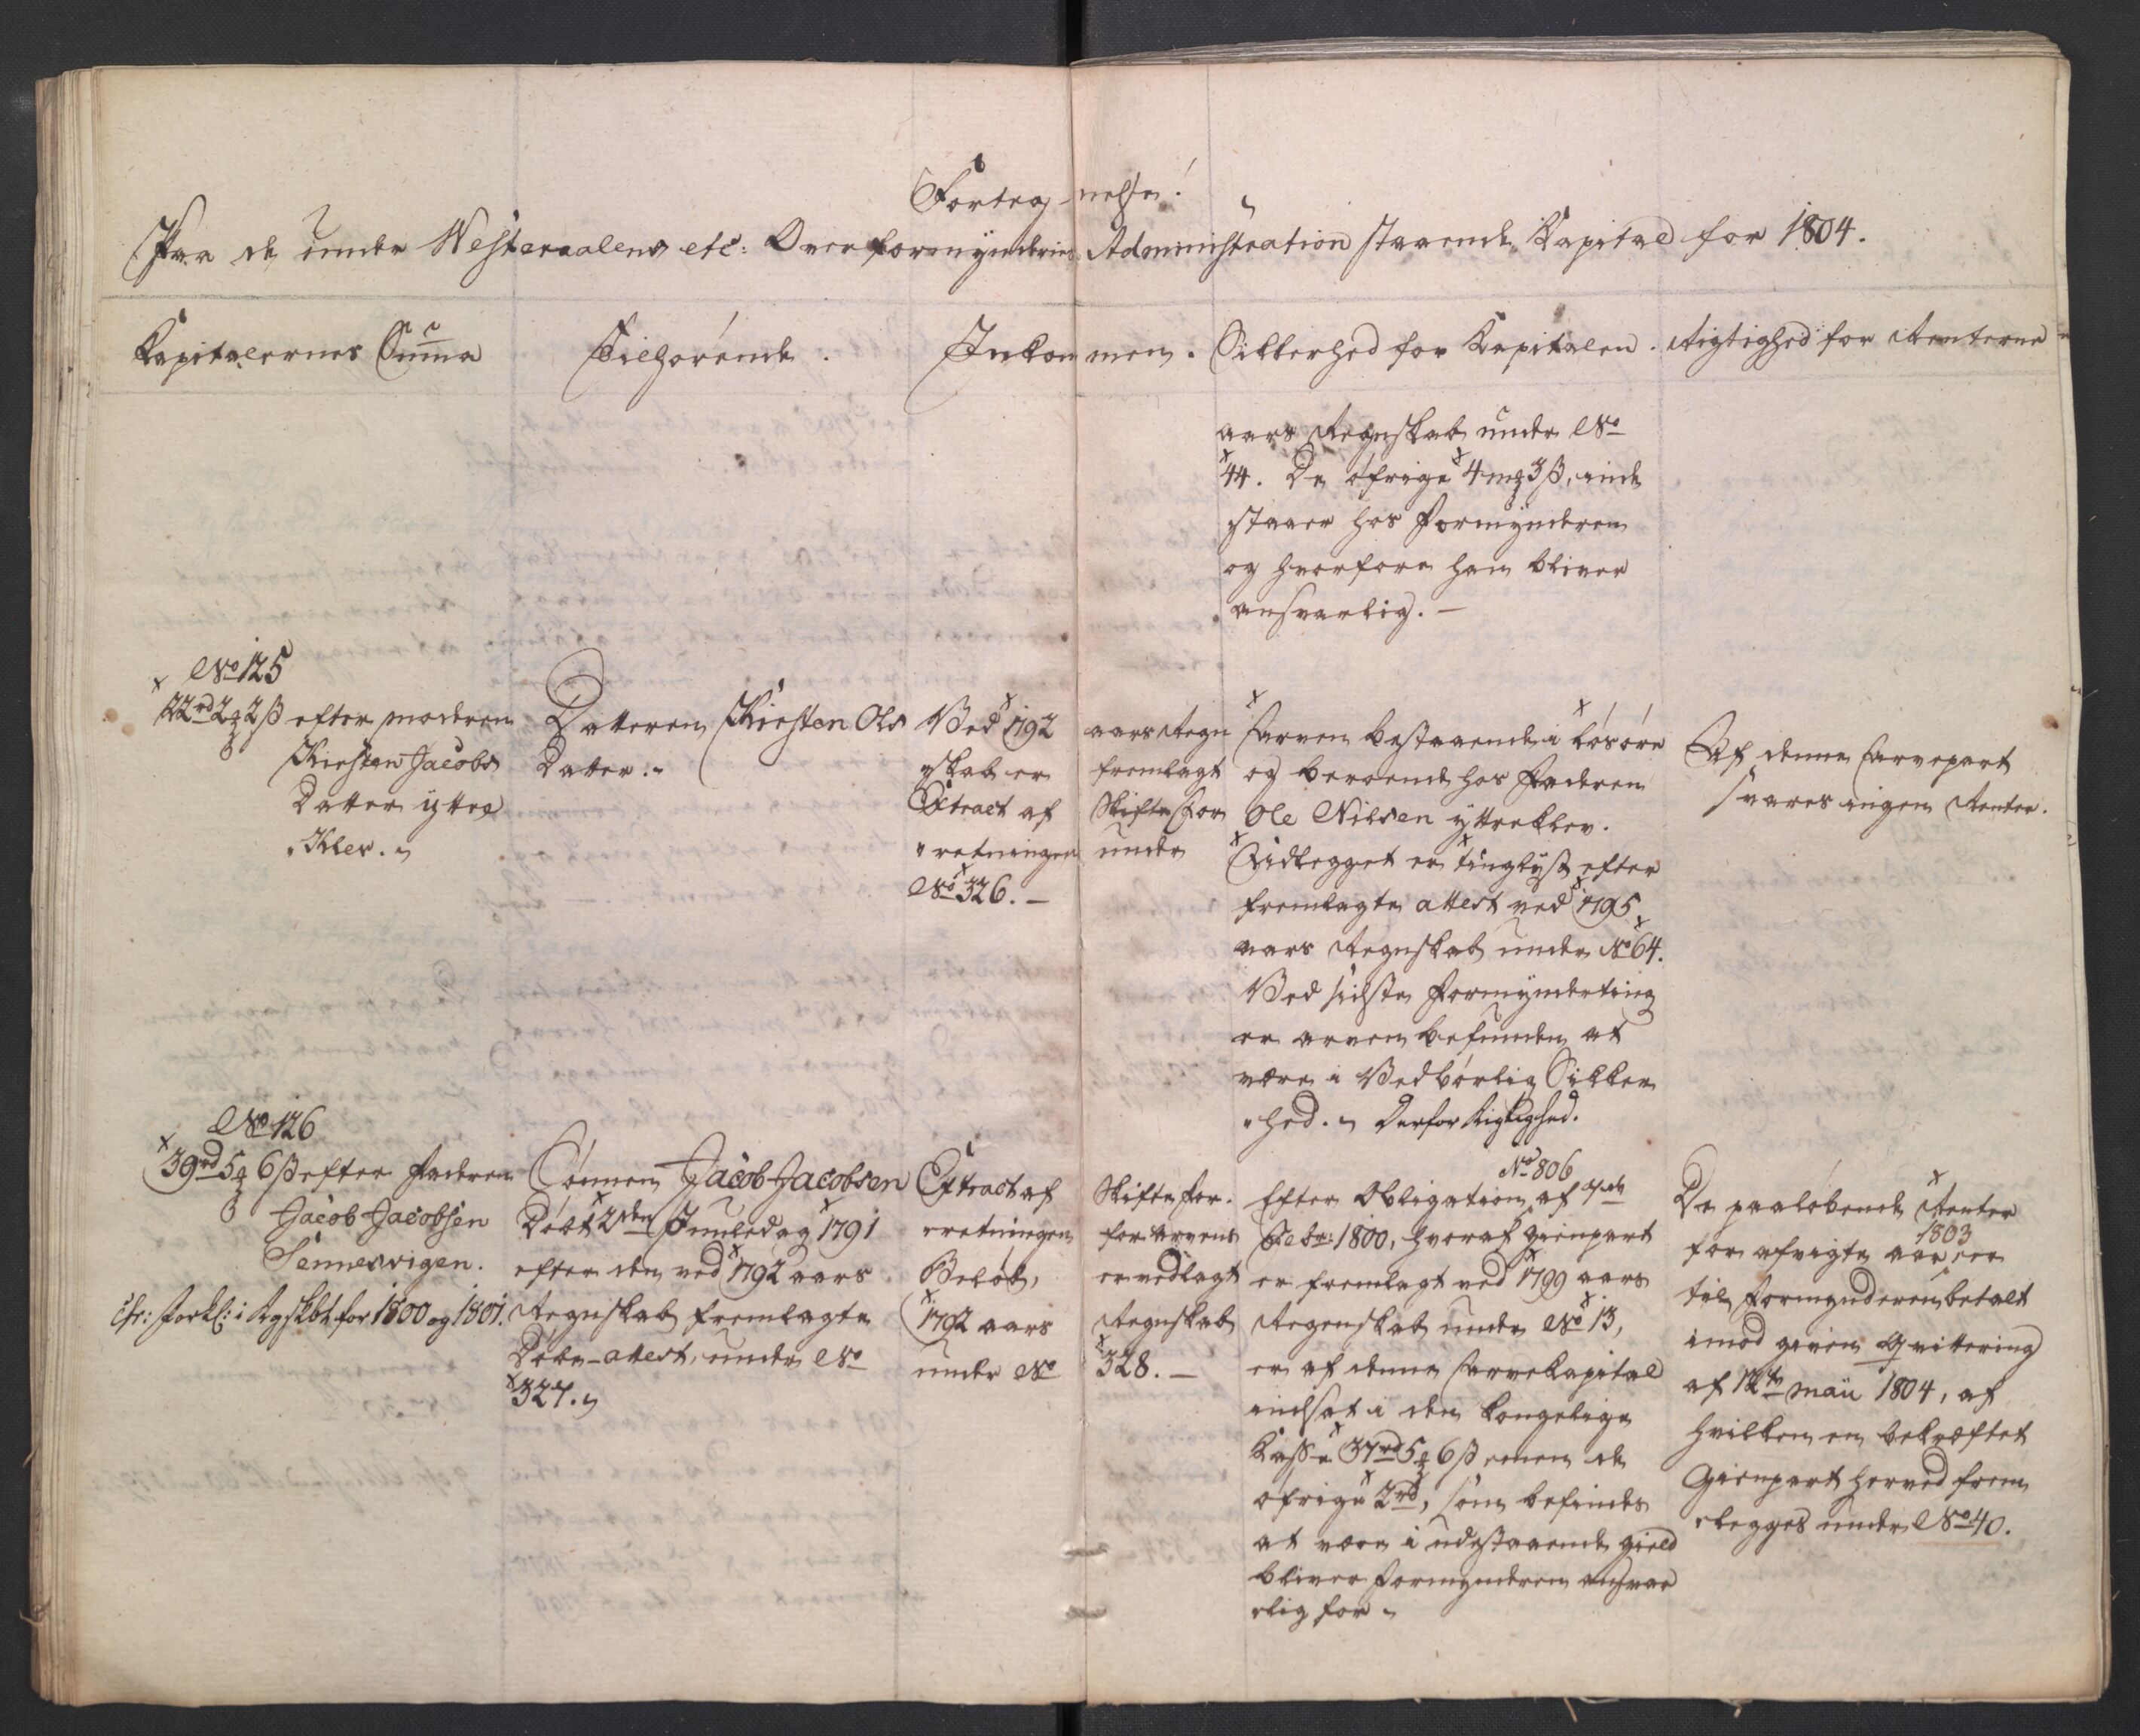 Forteg-nelse!
Paa de under Westeraalens etc: Overformynderies Administration staaende Kapital for 1804.
Kapitalernes Summa
Tilhørende.
Inkommen.
Sikkerhed for Kapitalen.
Rigtighed for Renterne
aars Regnskab under No
44. De øfrige 4 mƶ 3 ß, inde
staaer hos Formynderen
og hvorfore han bliver
ansvarlig. —
No 125
22 rd 2 ƶ 2 ß efter moderen
Kirsten Jacobs
Datter yttre
Klev.
Datteren Kirsten Ols
Datter.
Ved 1792 aars Regn
skab er fremlagt
Extract af Skifte For
retningen under
No 326. —
Arven bestaaende i løsøre
og beroende hos Faderen
Ole Nilsen yttreklev.
Vidlegget er tinglyst efter
fremlagte attest ved 1795
aars Regnskab under No 64.
Ved sidste Formynderting
er arven befunden at
være i Vedbørlig Sikker
hed. Derfor Rigtighed.
Af denne Arvepart
svares ingen Renter.
No 126
39 rd 5 ƶ 6 ß efter Faderen
Jacob Jacobsen
Sennesvigen.
cfr: Forkl: i Rgskbt for 1800 og 1801.
Sønnen Jacob Jacobsen
Døbt 2den Juuledag 1791
efter den ved 1792 aars
Regnskab fremlagte
Døbe-attest, under No
327.
Extract af Skifte For-
retningen for arvens
Beløb, er vedlagt
1792 aars Regnskab
under No 328. —
No 806
Efter Obligation af 7de
Febr: 1800, hvoraf gienpart
er fremlagt ved 1799 aars
Regenskab under No 13,
er af denne Arvekapital
indsat i den kongelige
Kasse 37 rd 5 ƶ 6 ß men de
øfrige 2 rd, som befindes
at være i udestaaende gield
bliver Formynderen ansvar
lig for
De paaløbende Renter
for afvigte aar 1803 er
til Formynderen betalt
imod given Qvittering
af 12te maii 1804, af
hvilken en bekræftet
Gienpart herved frem
legges under No 40.